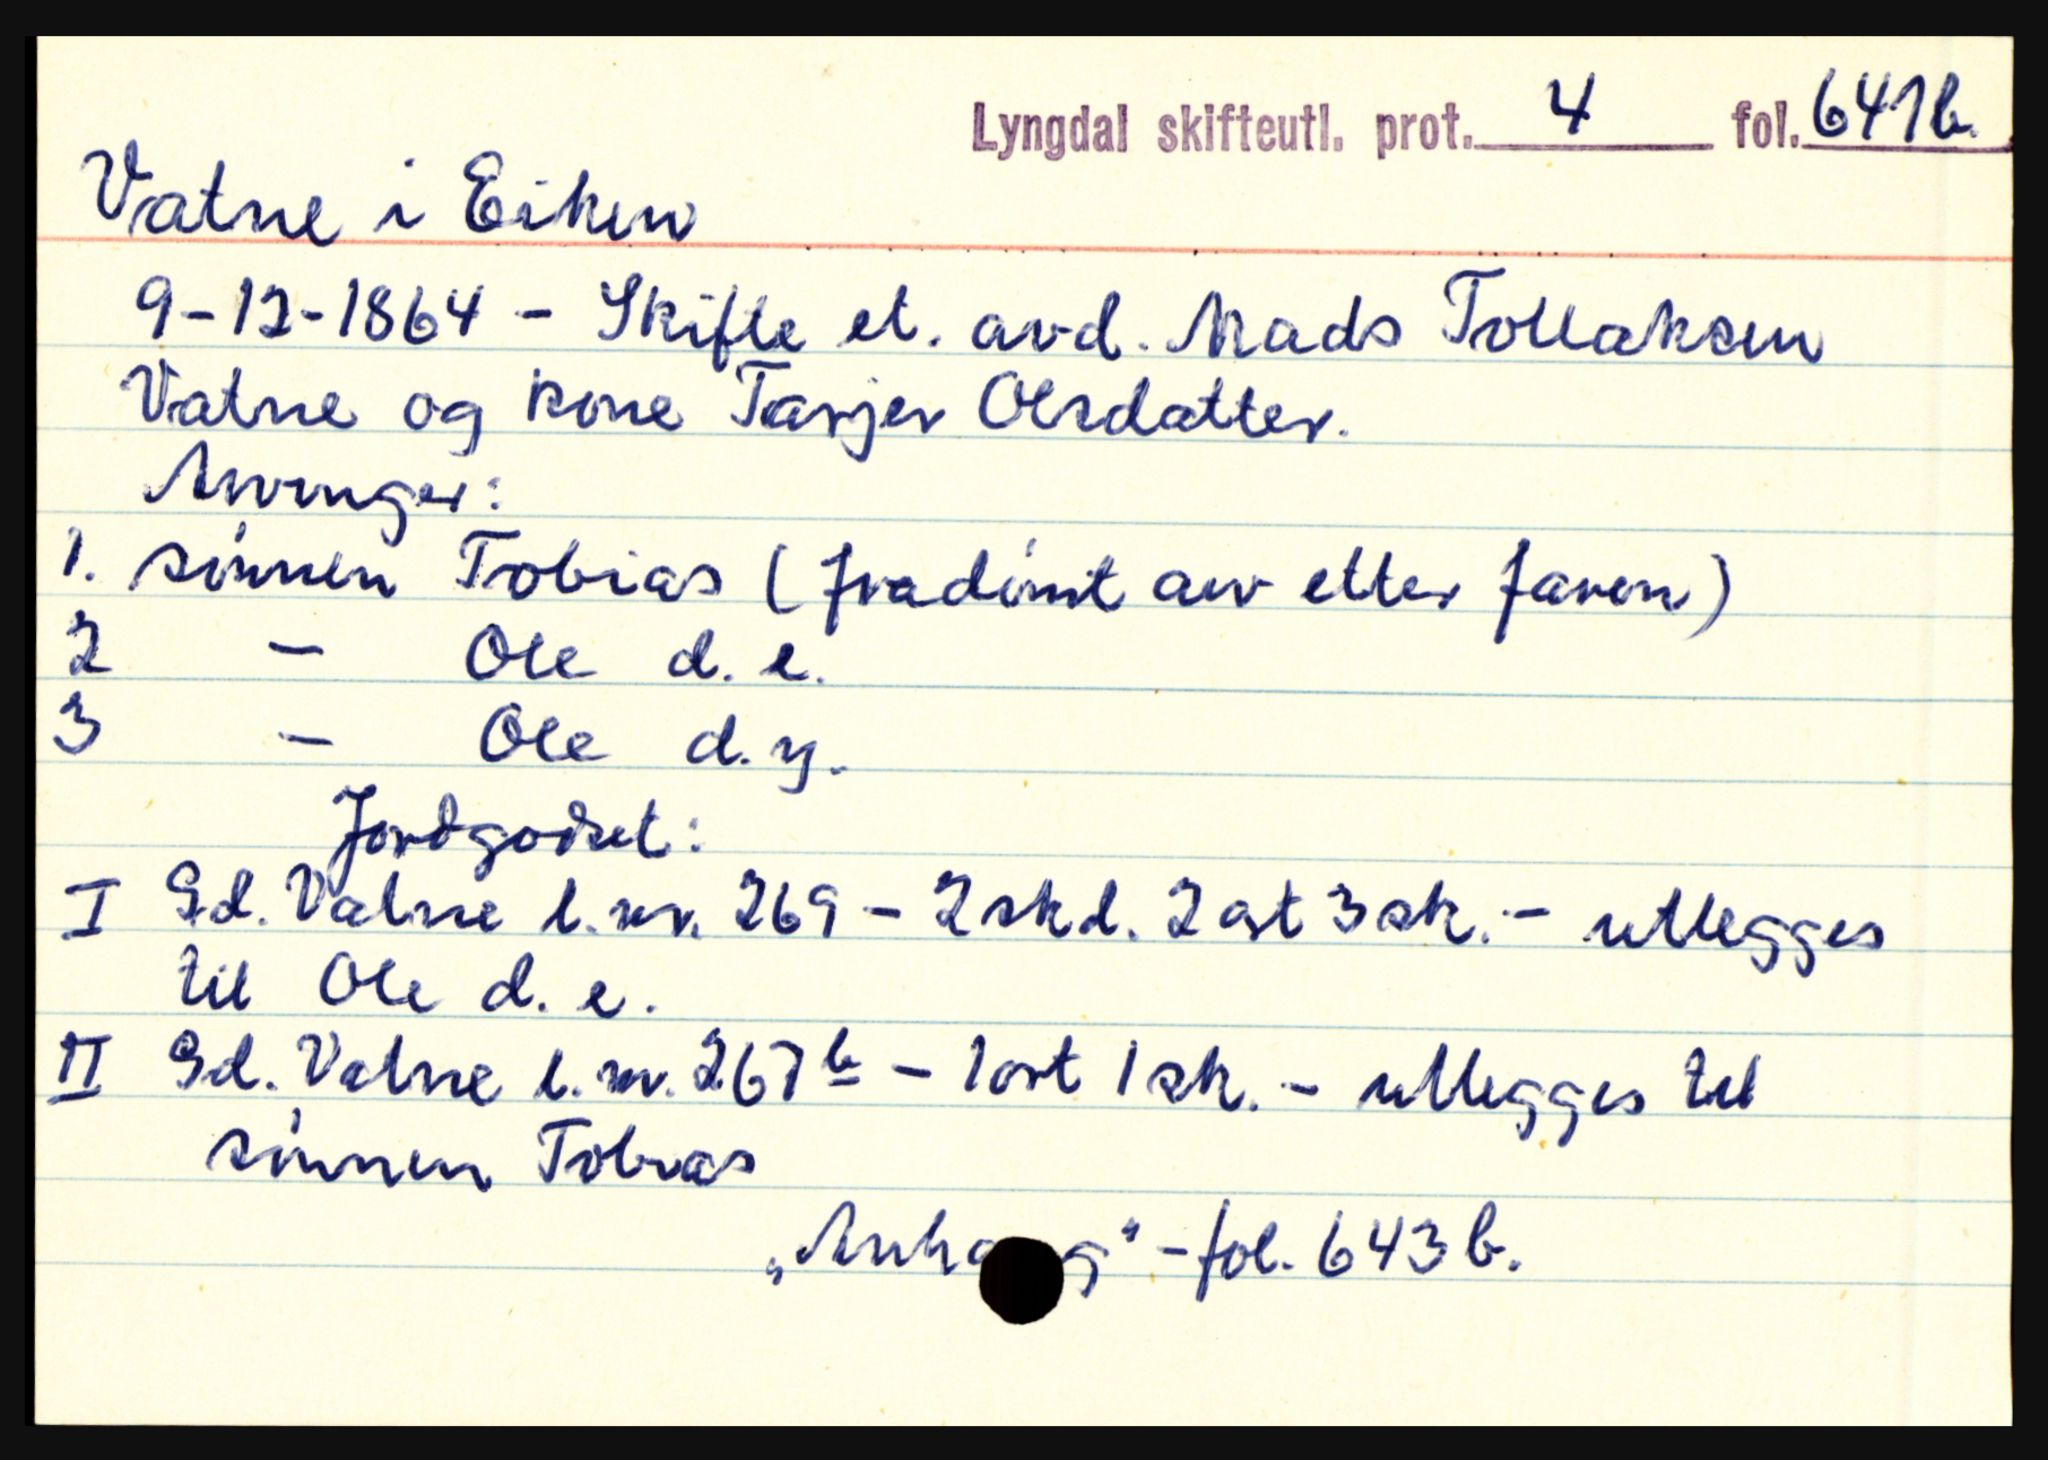 Lyngdal skifteutl. prot. 4 fol. 641b.
Vatne i Eiken
9-12-1864 - Skifte et. avd. Mads Tollaksen
Vatne og kone Tarjer Olsdatter.
Arvinger:
1. sønnen Tobias (fradømt arv etter faren)
2 - Ole d. e.
3 - Ole d. y.
Jordgodset:
I Gd. Vatne l. nr. 269 - 2 skd. 2 ort 3 sk. - utlegges
til Ole d. e.
II Gd. Vatne l. nr. 267 b - 1 ort 1 sk. - utlegges til
sønnen Tobias
„Anhang" - fol. 643 b.